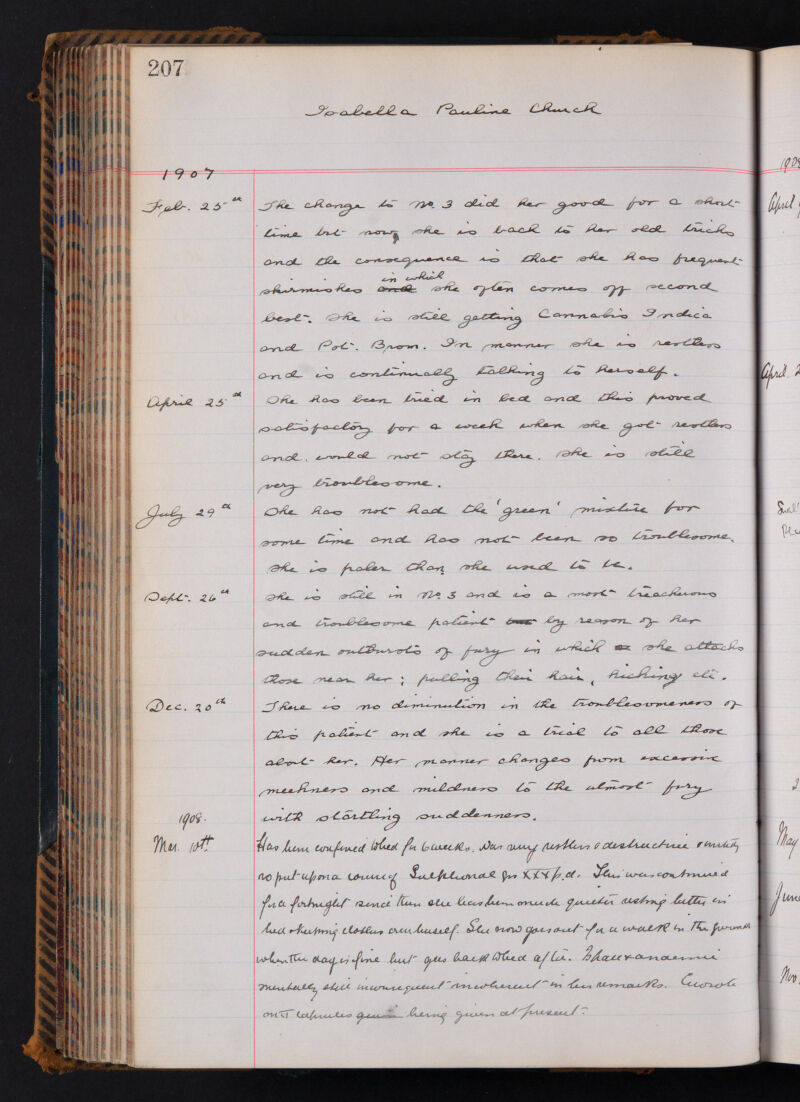 207
Isabella Pauline Church
1907
Feb. 25th The change to No. 3 did her good for a short
time but now, she is back to her old tricks
and the consequence is that she has frequent
skirmishes and in which she often comes off second
best. She is still getting Cannabis Indica
and Pot. Brom. In manner she is restless
and is continually talking to herself.
April 25th She has been tried in bed and this proved
satisfactory for a week when she got restless
and would not stay there. She is still
very troublesome.
July 29th She has not had the 'green' mixture for
some time and has not been so troublesome.
She is paler than she used to be.
Sept. 26th She is still in No. 3 and is a most treacherous
and troublesome patient by reason of her
sudden outbursts of fury in which she attacks
those near her; pulling their hair, kicking etc.
Dec. 20th There is no diminution in the troublesomeness of
this patient and she is a trial to all those
about her. Her manner changes from excessive
meekness and mildness to the utmost fury
1908. with startling suddenness.
Mar. 10th Has been confined to bed for 6 weeks. Was very restless & destructive &
so put upon a course of Sulphonal grs XXX p.d. This was continued
for a fortnight since then she has been much quieter resting better in
bed & keeping clothes over herself. She now goes out for a walk in the
when the day is fine but goes back to bed after.
mentally still incoherent in her remarks.
capsules being given at present.
April
April 2
May
June
Nov.